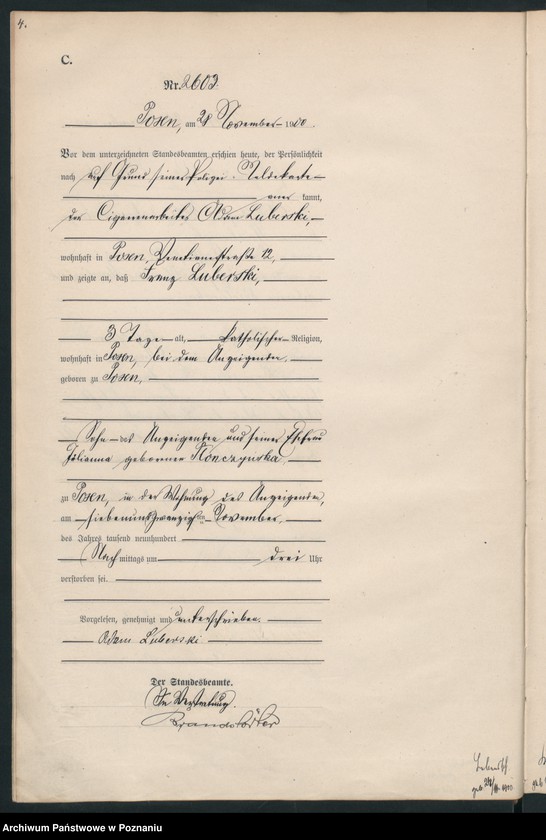 4.
C.
Nr. 2603.
Posen, am 28 November 1900.
Vor dem unterzeichneten Standesbeamten erschien heute, der Persönlichkeit
nach auf Grund seiner Polizei-Meldekarte
aner kannt,
der Cigarrenarbeiter Adam Luberski,
wohnhaft in Posen, 12,
und zeigte an, daß Franz Luberski,
3 Tage alt, katholischer Religion,
wohnhaft in Posen, bei dem Anzeigenden.
geboren zu Posen,
Sohn des Anzeigenden und seiner Ehefrau
Julianna geborenen
zu Posen, in der Wohnung des Anzeigenden,
am siebenundzwanzigsten November,
des Jahres tausend neunhundert
Nach mittags um drei Uhr
verstorben sei.
Vorgelesen, genehmigt und unterschrieben.
Adam Luberski
Der Standesbeamte.
In Vertretung.
Brandstäter
geb.
Archiwum Państwowe w Poznaniu